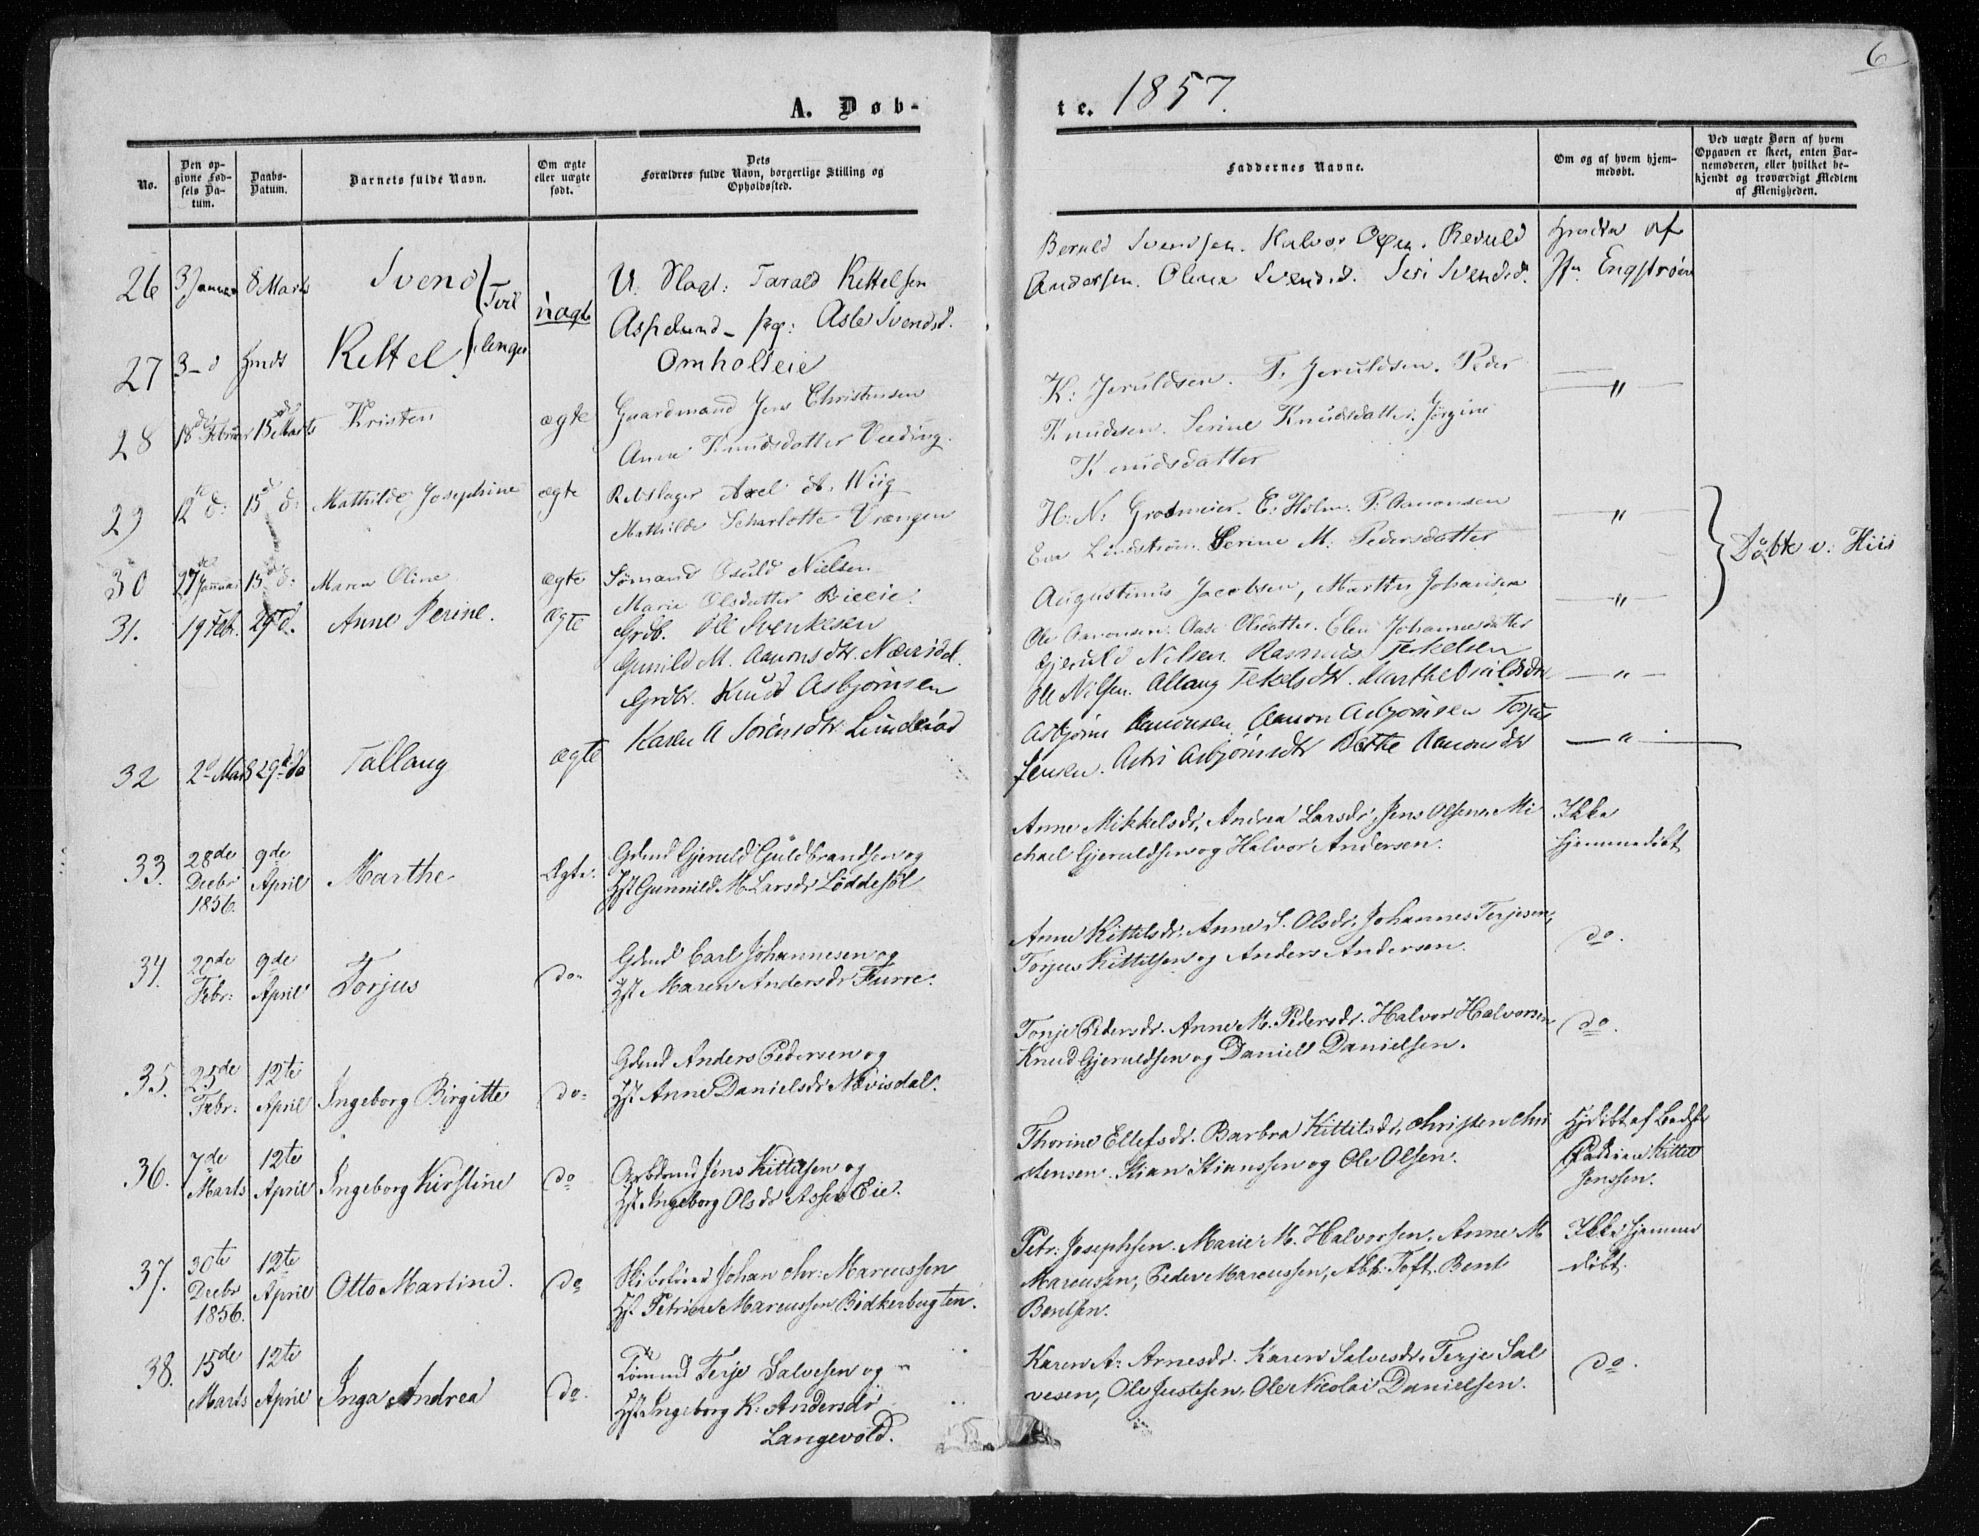 6
A. Døb-
te. 1857.
No.
Den op-
givne Fød-
sels Da-
tum.
Daabs-
Datum.
Barnets fulde Navn.
Om ægte
eller uægte
født.
Dets
Forældres fulde Navn, borgerlige Stilling og
Opholdssted.
Faddernes Navne.
Om og af hvem hjem-
medøbt.
Ved uægte Børn af hvem
Opgaven er skeet, enten Bar-
nemoderen, eller hvilket be-
kjendt og troværdigt Medlem
af Menigheden.
26 3 Januar 8 Marts Svend Tvil
uægte
U. Slagt: Tarald Kettelsen
Aspelund - pg: Asle Svendsd.
Omholteie
Beruld Svendsen. Halvor Olsen. Beruld
Andersen. Olena Svendsd. Siri Svendsd.
af
Engstrøm
27 3 - d Kettel linger
28 18 Februar 15 Marts Kristen ægte
Gaardmand Jens Christensen
Anne Knudsdatter Veding.
K: Jeruldsen. T. Jeruldsen. Peder
Knudsen. Serine Knudsdatter. Jørgine
Knudsdatter
"
29 12 d: 15 d: Mathilde Josephine ægte
Rebslager Axel A. Wiig
Mathilde Scharlotte Vrængen
H: N: Grodmeier. E: Holm. P. Aanonsen
Eva Lindstrøm. Serine M: Pedersdatter
"
Døbte v: Hiis
30 27 Januar 15 d: Maren Oline ægte
Sømand Osuld Nielsen
Marie Olsdatter Bieeie.
Augustinus Jacobsen, Marthe Johansen
Ole Aanonsen. Aase Olsdatter. Elen Johannesdatter
"
31. 19 Feb. 29 d. Anne Perine. ægte
Grdb. Ole Svenkesen
Gunild M. Aanonsdtr. Næveidal.
Gjeruld Nilsen. Rasmus Terkelsen
Ole Nilsen. Allaug Tekelsdtr. Marthe Osuldsdtr
"
32 2d Marts 29d do Tallaug ægte
Grdbr. Knud Asbjørnsen
Karen A Sørensdtr Linderød
Asbjørn Aanonsen. Aanon Asbjørnsen Torjus
Jensen. Astri Asbjørnsdtr Berthe Aanonsdtr
"
33. 28de
Decbr
1856.
9de
April
Marthe
Ægte.
Gdmd Gjeruld Guldbrandsen og
Hst Gunnild M. Larsdr Løddesøl
Anne Mikkelsdr, Andrea Larsdr, Jens Olsen, Mi
chael Gjeruldsen og Halvor Andersen.
Ikke
hjemmedøbt
34. 20de
Febr:
9de
April
Torjus
do.
Gdmd Carl Johannesen og
Hst Maren Andersdr Furre.
Anne Kittilsdr, Anne S. Olsdr, Johannes Terjesen,
Torjus Kittilsen og Anders Andersen.
do.
35. 25de
Febr:
12te
April
Ingeborg Birgitte
do.
Gdmd Anders Pedersen og
Hst Anne Danielsdr Nævisdal.
Tonje Pedersdr. Anne M. Pedersdr. Halvor Halvorsen
Knud Gjeruldsen og Daniel Danielsen.
do.
36. 7de
Marts
12te
April
Ingeborg Kirstine
do
Arbdmd Jens Kittilsen og
Hst Ingeborg Olsdr Asses Eie.
Thorine Ellefsdr. Barbra Kittilsdr, Christen Chri
stensen. Stian Stianssen og Ole Olsen.
Hjdøbt af Bedste
faderen Kittel
Jenssen.
37. 30te
Decbr
1856.
12te
April
Otto Martini.
do
Johan Chr: Marcussen
Hst Petrine Marcussen Bødkerbugten.
Petr: Josephsen. Marie M. Halvorsen, Anne M
Marcussen, Peder Marcussen, Abr: Toft. Bent
Bentsen.
Ikke hjemme
døbt.
38. 15de
Marts
12te
April
Inga Andrea
do.
Tømmd Terje Salvesen og
Hst Ingeborg K: Andersdr
Langevold.
Karen A: Arnesdr. Karen Salvesdr, Terje Sal
vesen, Ole Justesen, Ole Nicolai Danielsen.
do.